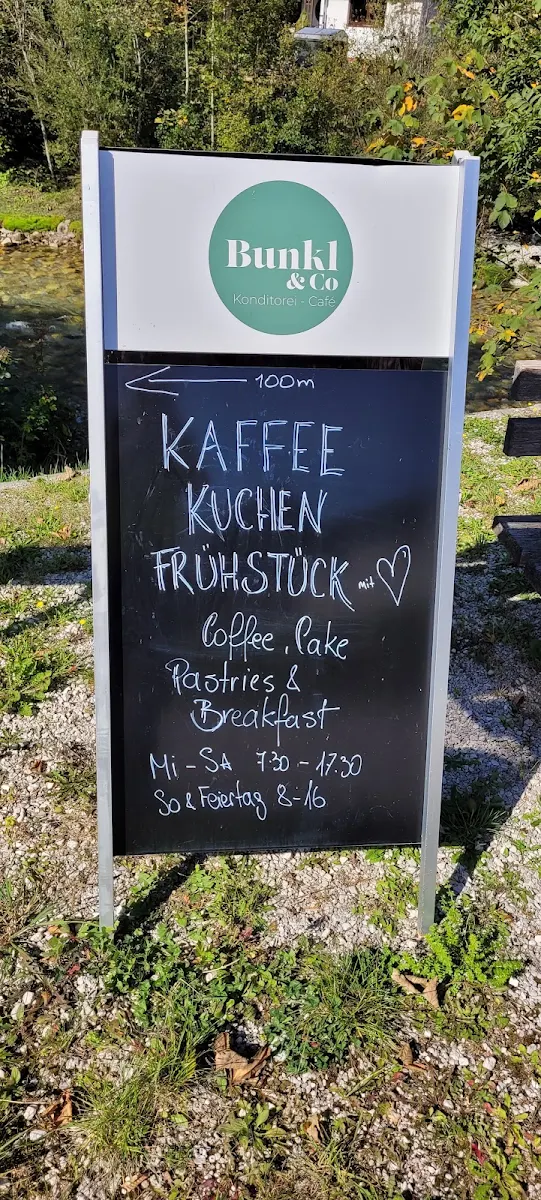 Bunkl
& Co
Konditorei - Café
100m
KAFFEE
KUCHEN
FRÜHSTÜCK mit
Coffee, Cake
Pastries &
Breakfast
Mi - SA 7.30 - 17.30
So & Feiertag 8-16